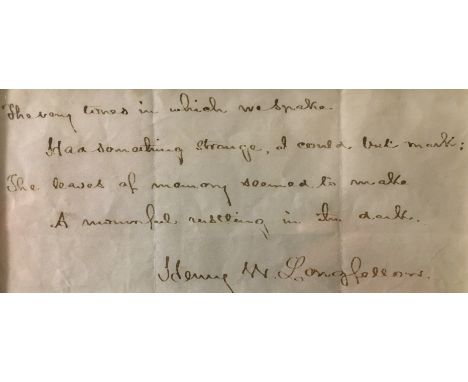 The very tones in which we spake
Had something strange, I could but mark;
The leaves of memory seemed to make
A mournful rustling in the dark.
Henry W. Longfellow.